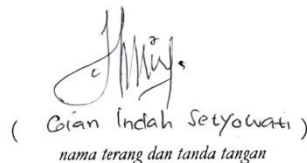 ( Gian Indah Setyowati )
nama terang dan tanda tangan